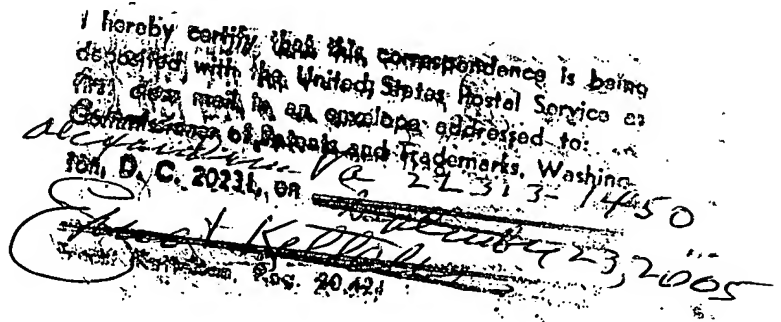 I hereby certify that this correspondence is being
deposited with the United States Postal Service as
first class mail in an envelope addressed to:
Commissioner of Patents and Trademarks, Washing-
Alexandria Va 22313-1450
ton, D. C. 20231, on
23, 2005
Reg. 20,421